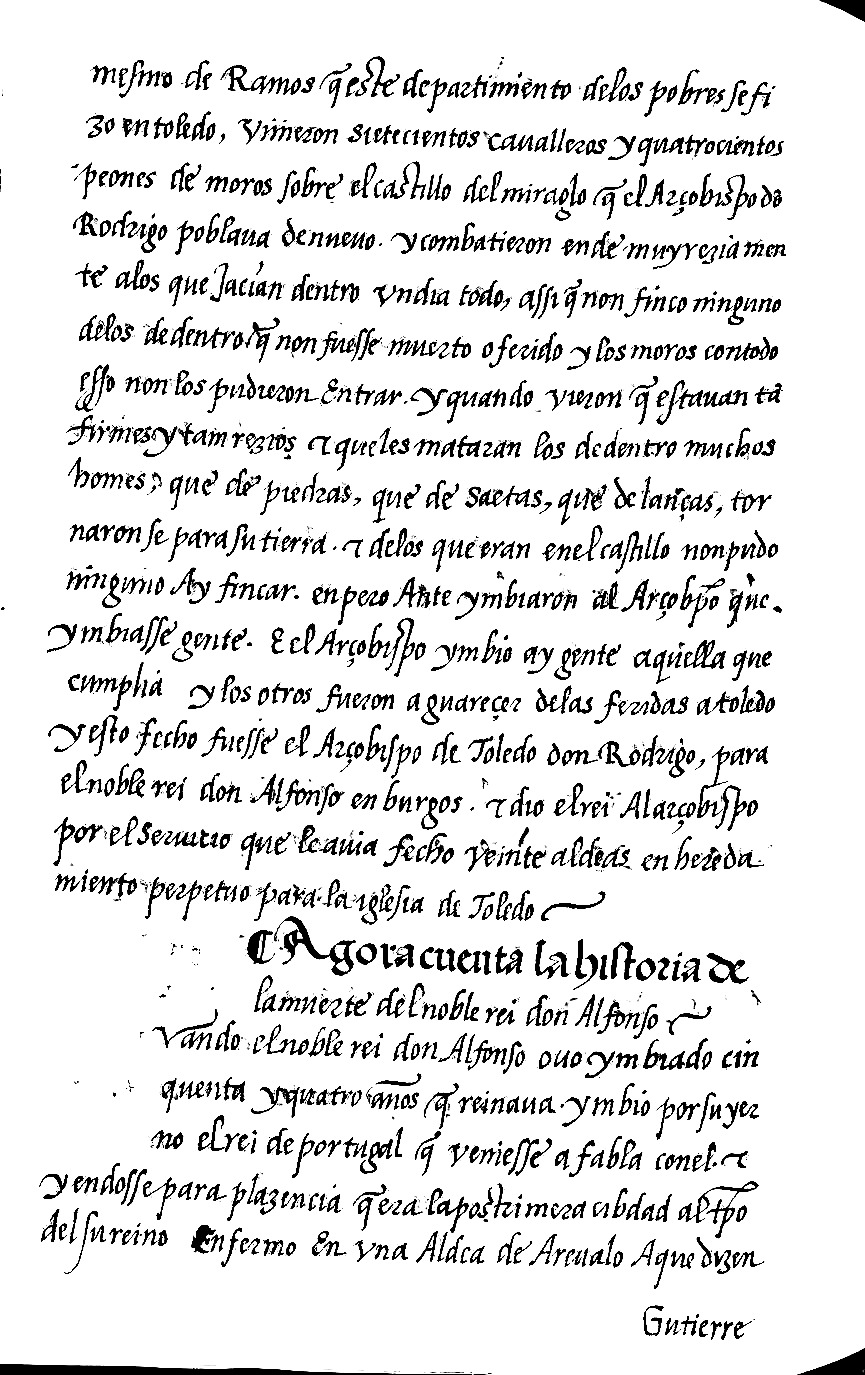 mesmo de Ramos q̃ este departimiento delos pobres se fi
zo en toledo, Vinieron sietecientos cavalleros y quatrocientos
peones de moros sobre el castillo del miraglo q̃ el Arçobispo dō
Rodrigo poblaua de nuevo. y combatieron ende muy reziamen
te alos que Jacían dentro vn dia todo, assi q̃ non finco ninguno
delos de dentro q̃ non fuesse muerto o ferido y los moros con todo
esso non los pudieron Entrar. y quando vieron q̃ estauan tā
firmes y tam rezios ⁊ que les mataran los de dentro muchos
homes, que de piedras, que de saetas, que de lanças, tor
naron se para su tierra. ⁊ delos que eran en el castillo non pudo
ninguno Ay fincar. enpero Ante ymbiaron al Arçobp̃o que.
ymbiasse gente. E el Arçobispo ymbio ay gente aquella que
cumplia y los otros fueron a guareçer delas feridas a toledo
y esto fecho fuesse el Arçobispo de Toledo don Rodrigo, para
el noble rei don Alfonso en burgos. ⁊ dio el rei Al arçobispo
por el seruicio que le auia fecho veinte aldeas en hereda
miento perpetuo para la iglesia de Toledo
¶ Agora cuenta la historia de
la muerte del noble rei don Alfonso
vando el noble rei don Alfonso ovo ymbiado cin
quenta y quatro años q̃ reinaua. ymbio por su yer
no el rei de portugal q̃ veniesse a fabla conel. ⁊
yendosse para plazencia q̃ era la postrimera cibdad al tp̃o
del su reino Enfermo En vna Aldea de Areualo A que dizen
Gutierre